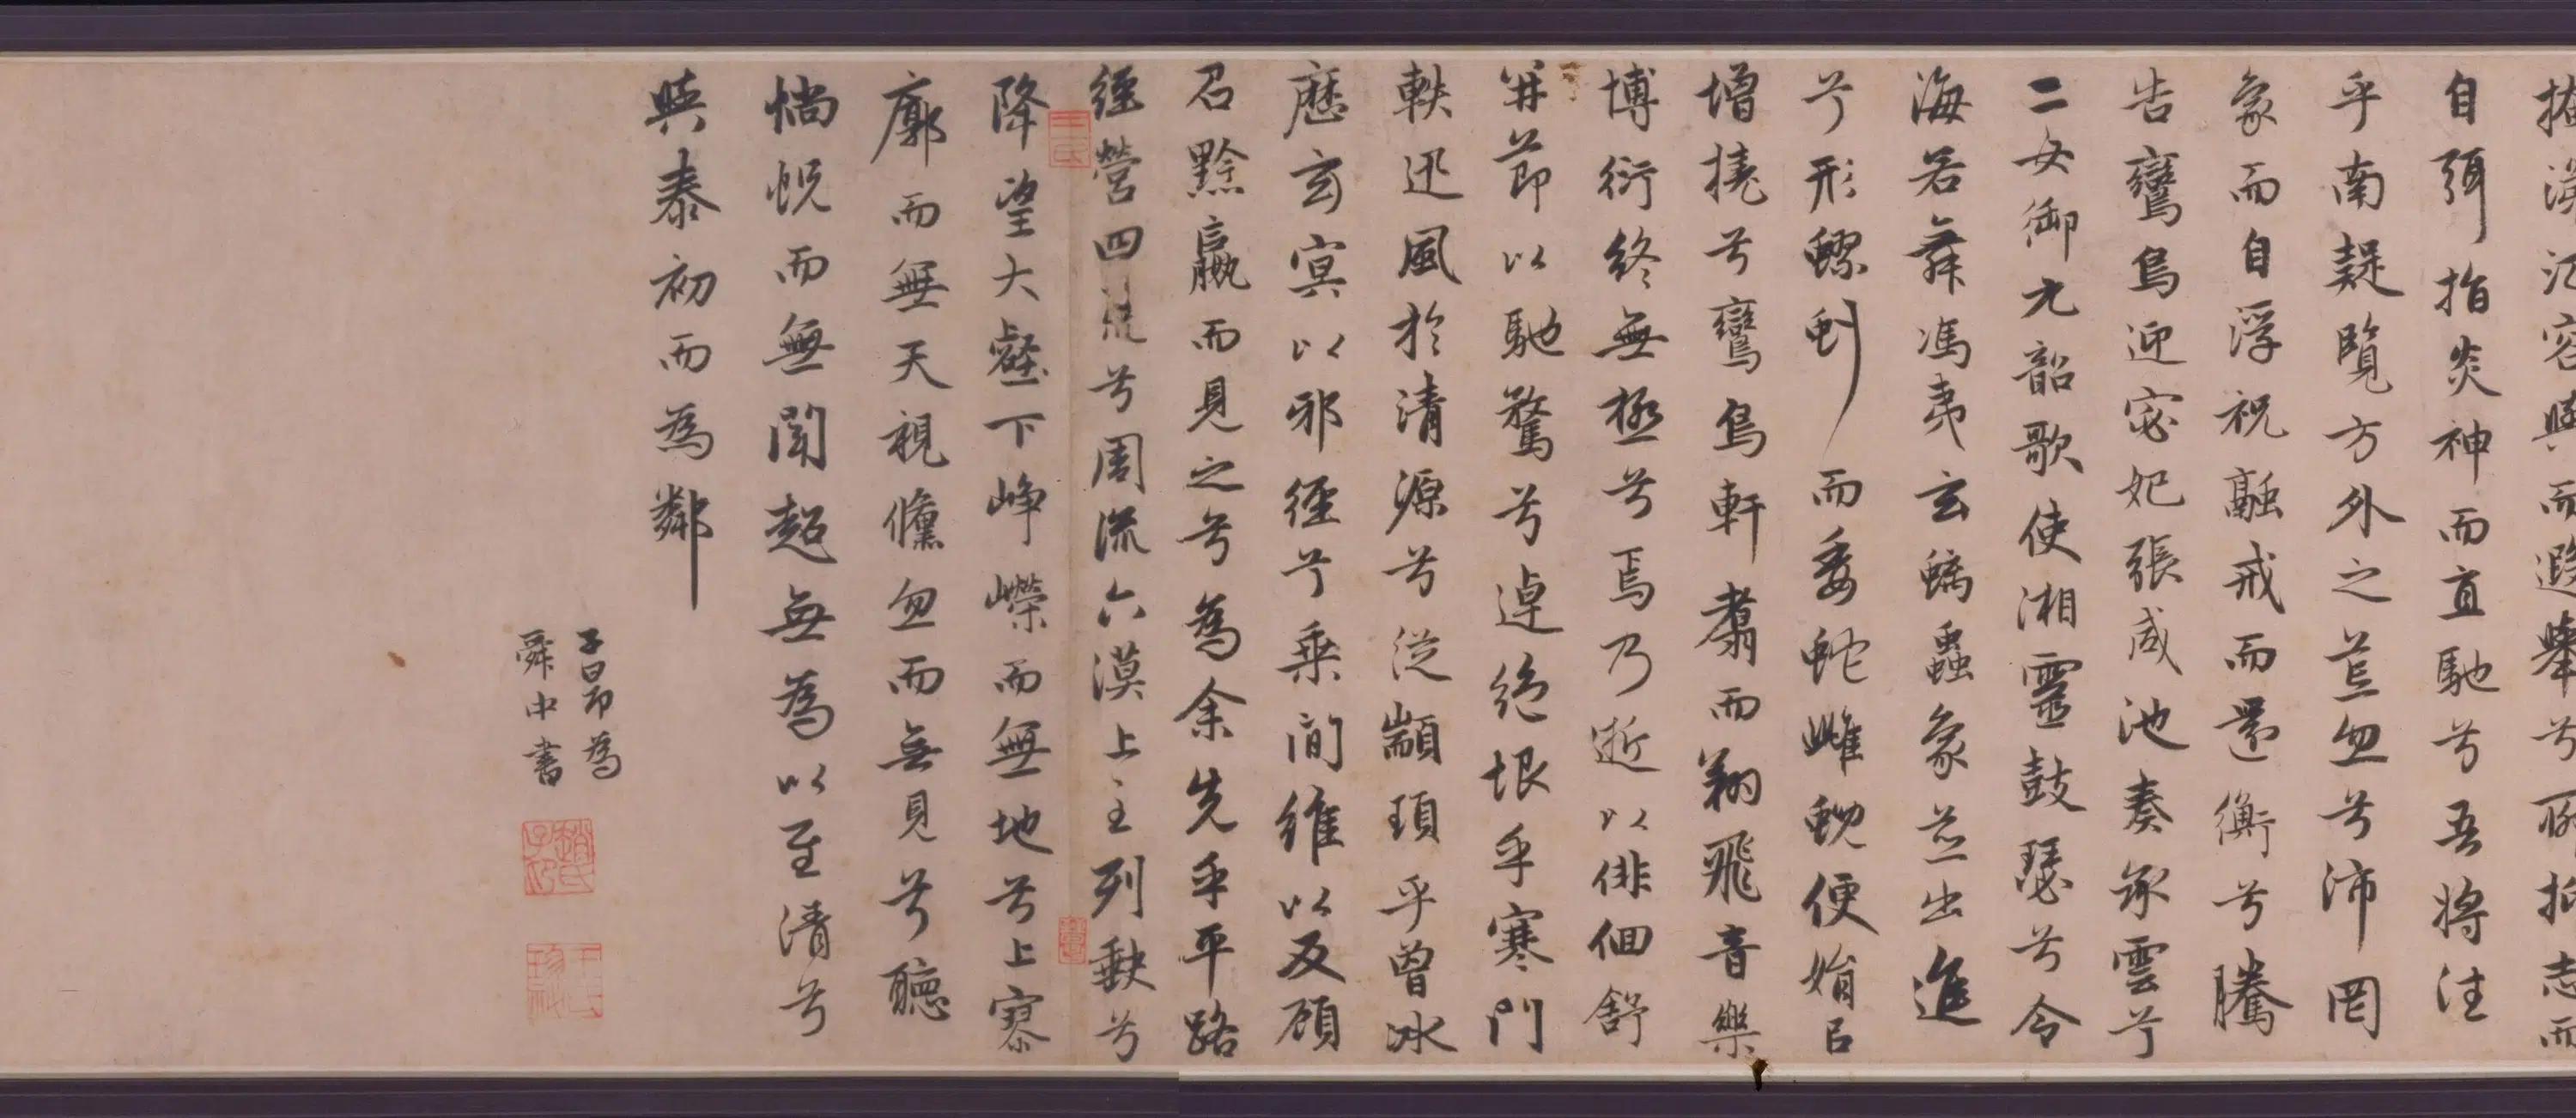 掩涕氾容與而遐舉兮聊抑志而
自弭指炎神而直馳兮吾將往
乎南疑覽方外之荒忽兮沛罔
象而自浮祝融戒而還衡兮騰
告鸞鳥迎宓妃張咸池奏承雲兮
二女御九韶歌使湘靈鼓瑟兮令
海若舞馮夷玄螭蟲象並出進
兮形蟉虯而委蛇雌蜺便娟以
增撓兮鸞鳥軒翥而翔飛音樂
博衍終無極兮焉乃逝以俳佪舒
并節以馳騖兮逴絕垠乎寒門
軼迅風於清源兮從顓頊乎曾冰
歷玄冥以邪徑兮乘間維以反顧
召黔嬴而見之兮為余先乎平路
經營四荒兮周流六漠上至列缺兮
降望大壑下崢嶸而無地兮上寥
廓而無天視儵忽而無見兮聽
惝怳而無聞超無為以至清兮
與泰初而為鄰
子昂為
舜中書
趙氏子昂